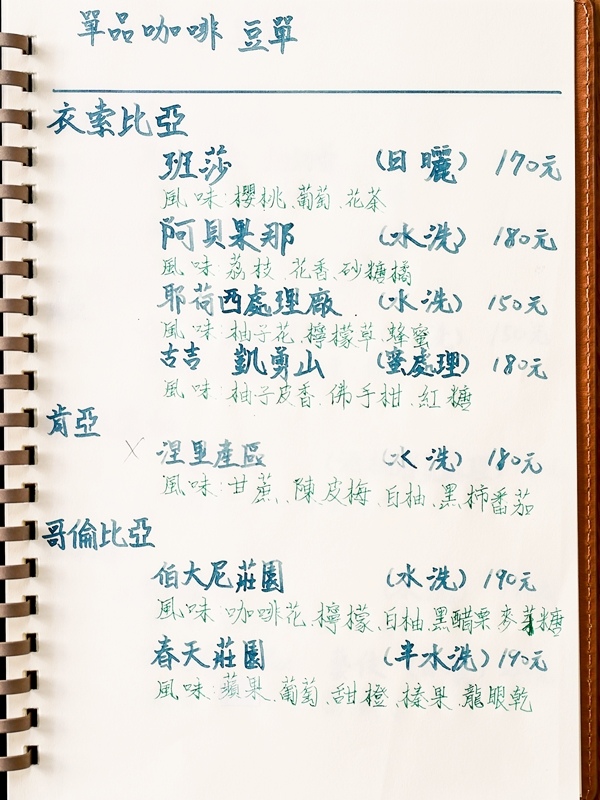 單品咖啡 豆單
衣索比亞
班莎 (日曬) 170元
風味:櫻桃、葡萄、花茶
阿貝果那 (水洗) 180元
風味:荔枝、花香、砂糖橘
耶荷西處理廠 (水洗) 150元
風味:柚子花、檸檬草、蜂蜜
古吉 凱勇山 (蜜處理) 180元
風味:柚子皮香、佛手柑、紅糖
肯亞
× 涅里產區 (水洗) 180元
風味:甘蔗、陳皮梅、白柚、黑柿番茄
哥倫比亞
伯大尼莊園 (水洗) 190元
風味:咖啡花、檸檬、白柚、黑醋栗、麥芽糖
春天莊園 (半水洗) 190元
風味:蘋果、葡萄、甜橙、榛果、龍眼乾